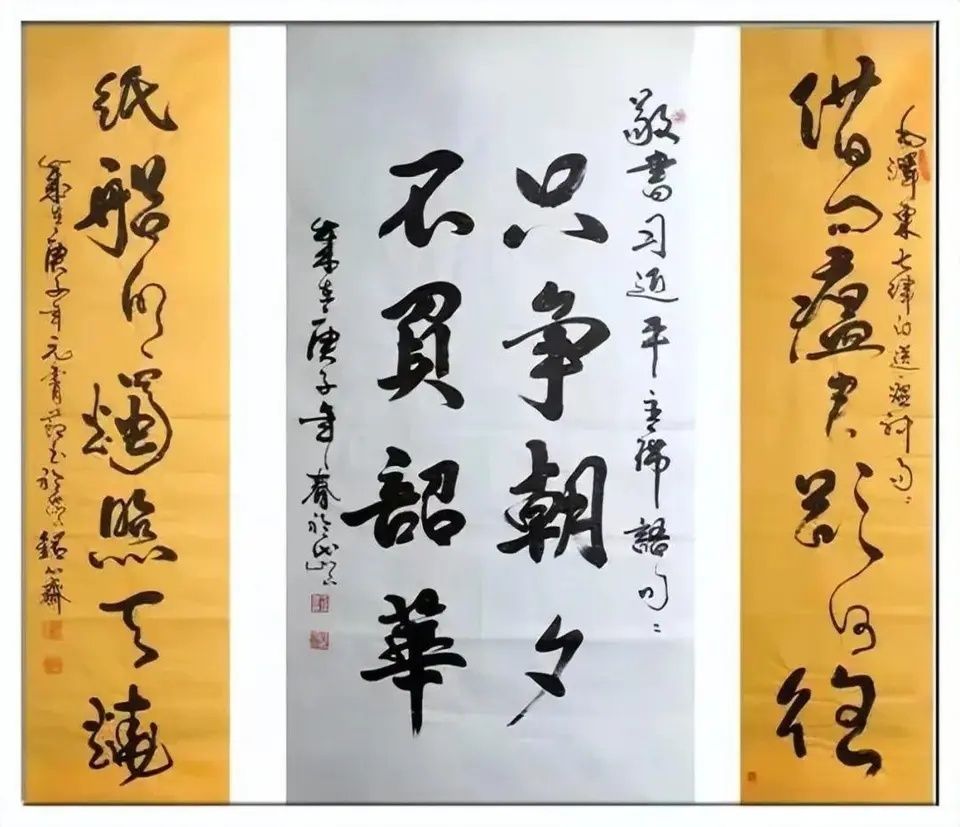 毛澤東七律的送瘟神句
借问瘟君欲何往
敬書习近平主席語句
只争朝夕
不負韶華
歲在庚子年春於
紙船明燭照天燒
歲在庚子年元宵節